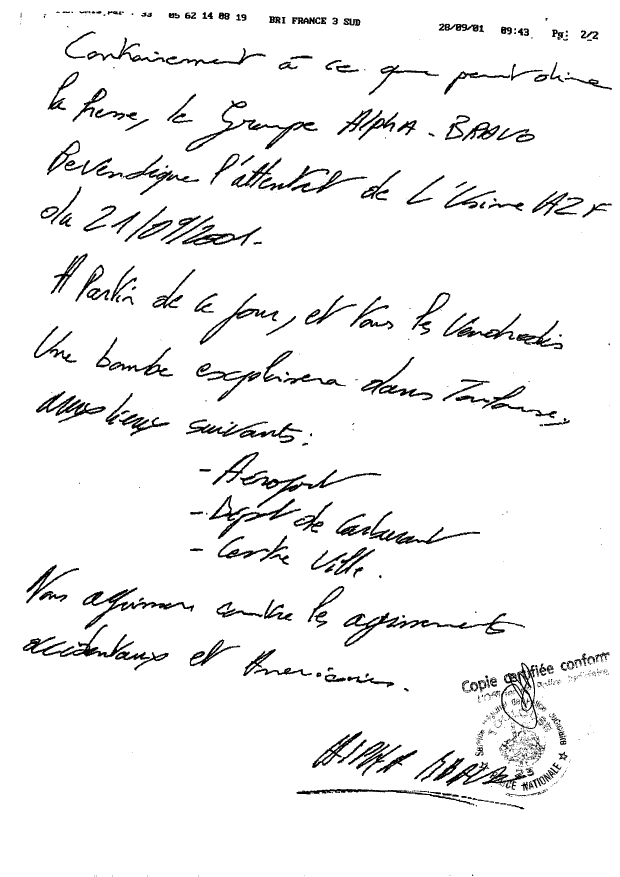 33 05 62 14 08 19 BRI FRANCE 3 SUD 28/09/01 09:43 Pg: 2/2
Contrairement à ce que peut dire
la Presse, le Groupe AlphA - BRAVO
Revendique l'attentat de L'Usine AZF
du 21/09/2001.
A Partir de ce jour, et tous les Vendredis
Une bombe explosera dans Toulouse,
aux lieux suivants :
- Aéroport
- Dépot de Carburant
- Centre Ville.
Nous agissons contre les agissements
occidentaux et Americains.
Copie certifiée conforme
L'Officier de Police Judiciaire
Service Régional de Police Judiciaire
TOULOUSE
POLICE NATIONALE
AlPHA BRAVO